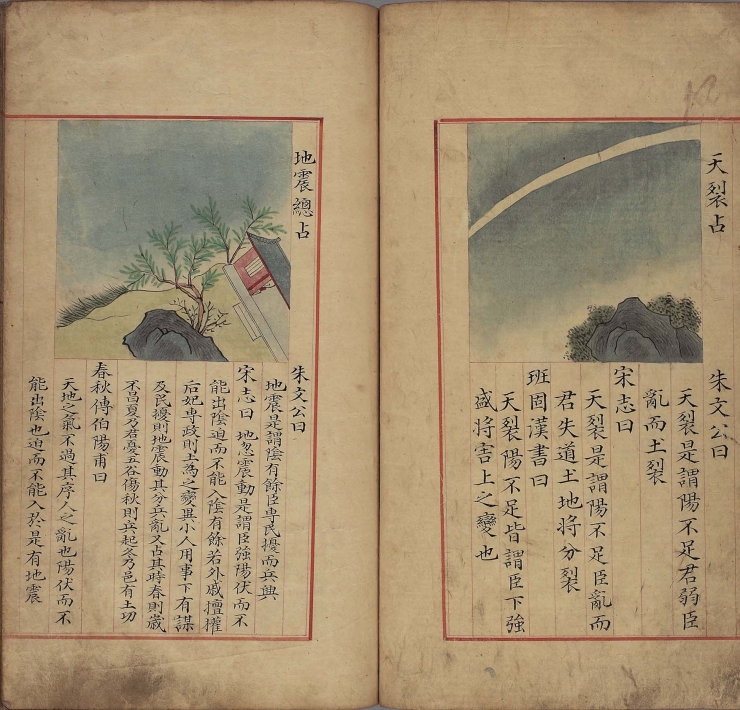 天裂占
朱文公曰
天裂是謂陽不足君弱臣
亂而土裂
宋志曰
天裂是謂陽不足臣亂而
君失道土地將分裂
班固漢書曰
天裂陽不足皆謂臣下強
盛將害上之變也
地震總占
朱文公曰
地震是謂陰有餘臣専民擾而兵興
宋志曰 地忽震動是謂臣強陽伏而不
能出陰迫而不能入陰有餘若外戚擅權
后妃専政則土為之變異小人用事下有謀
及民擾則地震動其分兵亂又占其時春則歲
不昌夏乃君憂五谷傷秋則兵起冬乃邑有土功
春秋傳伯陽甫曰
天地之氣不過其序人之亂也陽伏而不
能出陰也迫而不能入於是有地震